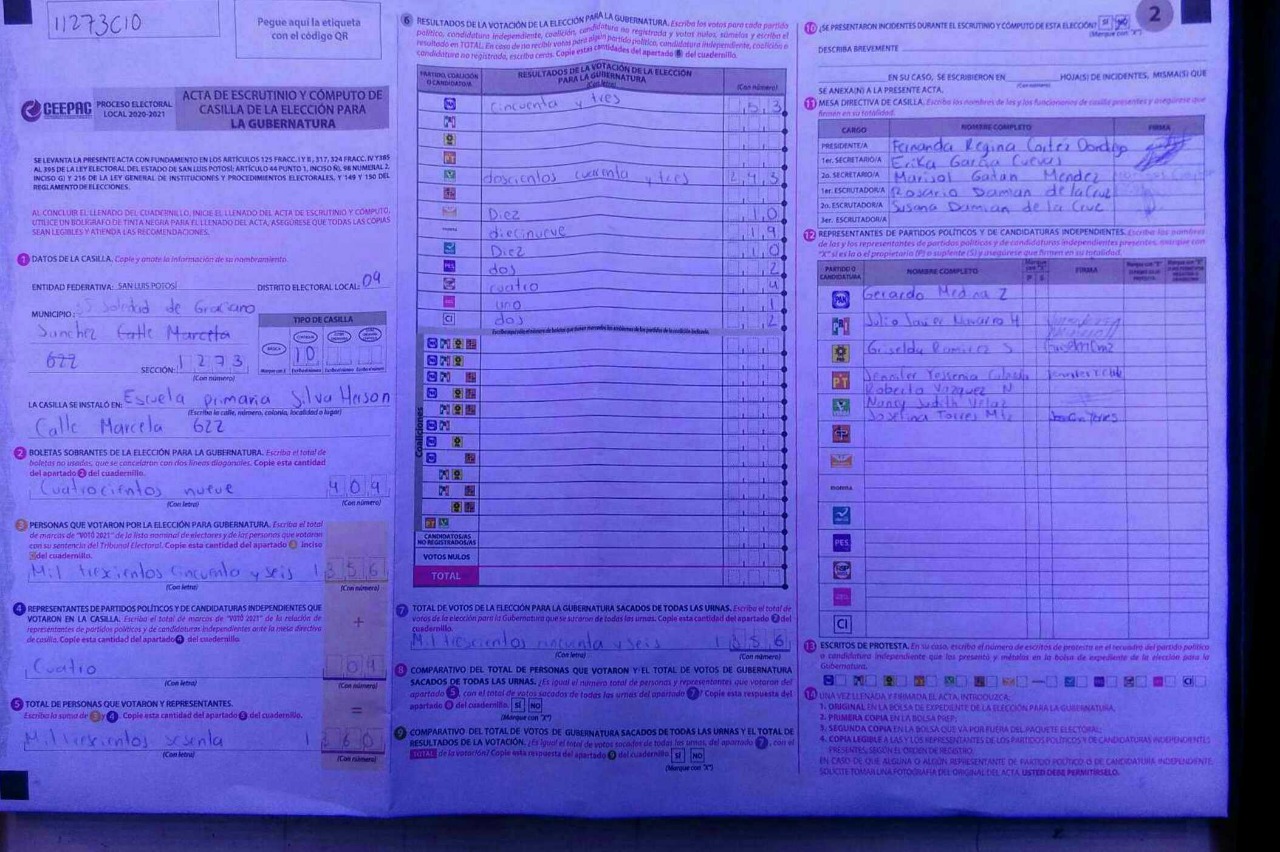 11273C10
Pegue aquí la etiqueta
con el código QR
CEEPAC
PROCESO ELECTORAL
LOCAL 2020-2021
ACTA DE ESCRUTINIO Y CÓMPUTO DE
CASILLA DE LA ELECCIÓN PARA
LA GUBERNATURA
SE LEVANTA LA PRESENTE ACTA CON FUNDAMENTO EN LOS ARTÍCULOS 125 FRACC. IV Y R, 317, 324 FRACC. IV Y 385
AL 395 DE LA LEY ELECTORAL DEL ESTADO DE SAN LUIS POTOSÍ; ARTÍCULO 44 PUNTO 1, INCISO Ñ), 98 NUMERAL 2,
INCISO G) Y 216 DE LA LEY GENERAL DE INSTITUCIONES Y PROCEDIMIENTOS ELECTORALES, Y 149 Y 150 DEL
REGLAMENTO DE ELECCIONES.
AL CONCLUIR EL LLENADO DEL CUADERNILLO, INICIE EL LLENADO DEL ACTA DE ESCRUTINIO Y CÓMPUTO,
UTILICE UN BOLÍGRAFO DE TINTA NEGRA PARA EL LLENADO DEL ACTA, ASEGÚRESE QUE TODAS LAS COPIAS
SEAN LEGIBLES Y ATIENDA LAS RECOMENDACIONES.
1 DATOS DE LA CASILLA. Copie y anote la información de su nombramiento.
ENTIDAD FEDERATIVA: SAN LUIS POTOSÍ DISTRITO ELECTORAL LOCAL: 04
MUNICIPIO: Soledad de Graciano
Sanchez Calle Marcela
622
TIPO DE CASILLA
10
SECCIÓN: 1273
(Con número)
LA CASILLA SE INSTALÓ EN: Escuela primaria Silva Herson
(Escriba la calle, número, colonia, localidad o lugar)
Calle Marcela 622
2 BOLETAS SOBRANTES DE LA ELECCIÓN PARA LA GUBERNATURA. Escriba el total de
boletas no usadas, que se cancelaron con dos líneas diagonales. Copie esta cantidad
del apartado 2 del cuadernillo.
Cuatrocientos nueve 409
(Con letra) (Con número)
3 PERSONAS QUE VOTARON POR LA ELECCIÓN PARA GUBERNATURA. Escriba el total
de marcas de "VOTÓ 2021" de la lista nominal de electores y de las personas que votaron
con su sentencia del Tribunal Electoral. Copie esta cantidad del apartado 3 inciso
del cuadernillo.
Mil trescientos cincuenta y seis 1356
(Con letra) (Con número)
4 REPRESENTANTES DE PARTIDOS POLÍTICOS Y DE CANDIDATURAS INDEPENDIENTES QUE
VOTARON EN LA CASILLA. Escriba el total de marcas de "VOTÓ 2021" de la relación de
representantes de partidos políticos y de candidaturas independientes ante la mesa directiva
de casilla. Copie esta cantidad del apartado 4 del cuadernillo
+
Cuatro 04
(Con letra) (Con número)
5 TOTAL DE PERSONAS QUE VOTARON Y REPRESENTANTES.
Escriba la suma de 3 y 4 Copie esta cantidad del apartado 5 del cuadernillo.
=
Mil trescientos sesenta 1360
(Con letra) (Con número)
6 RESULTADOS DE LA VOTACIÓN DE LA ELECCIÓN PARA LA GUBERNATURA. Escriba los votos para cada partido
político, candidatura independiente, coalición, candidatura no registrada y votos nulos, súmelos y escriba el
resultado en TOTAL. En caso de no recibir votos para algún partido político, candidatura independiente, coalición o
candidatura no registrada, escriba ceros. Copie estas cantidades del apartado 6 del cuadernillo.
PARTIDO, COALICIÓN
O CANDIDATO/A
RESULTADOS DE LA VOTACIÓN DE LA ELECCIÓN
PARA LA GUBERNATURA
(Con letra) (Con número)
cincuenta y tres 53
doscientos cuarenta y tres 243
Diez 10
morena diecinueve 19
Diez 10
PES dos 2
cuatro 4
uno 1
CI dos 2
Coaliciones
CANDIDATOS/AS
NO REGISTRADOS/AS
VOTOS NULOS
TOTAL
7 TOTAL DE VOTOS DE LA ELECCIÓN PARA LA GUBERNATURA SACADOS DE TODAS LAS URNAS. Escriba el total de
votos de la elección para la Gubernatura que se sacaron de todas las urnas. Copie esta cantidad del apartado 7 del
cuadernillo.
Mil trescientos cincuenta y seis 1356
(Con letra) (Con número)
8 COMPARATIVO DEL TOTAL DE PERSONAS QUE VOTARON Y EL TOTAL DE VOTOS DE GUBERNATURA
SACADOS DE TODAS LAS URNAS. ¿Es igual el número total de personas y representantes que votaron del
apartado 5, con el total de votos sacados de todas las urnas del apartado 7? Copie esta respuesta del
apartado 8 del cuadernillo SÍ NO
(Marque con "X")
9 COMPARATIVO DEL TOTAL DE VOTOS DE GUBERNATURA SACADOS DE TODAS LAS URNAS Y EL TOTAL DE
RESULTADOS DE LA VOTACIÓN. ¿Es igual el total de votos sacados de todas las urnas, del apartado 7, con el
TOTAL de la votación? Copie esta respuesta del apartado 9 del cuadernillo SÍ NO
(Marque con "X")
2
10 ¿SE PRESENTARON INCIDENTES DURANTE EL ESCRUTINIO Y CÓMPUTO DE ESTA ELECCIÓN? SÍ NO
(Marque con "X")
DESCRIBA BREVEMENTE
EN SU CASO, SE ESCRIBIERON EN HOJA(S) DE INCIDENTES, MISMA(S) QUE
(Con número)
SE ANEXA(N) A LA PRESENTE ACTA.
11 MESA DIRECTIVA DE CASILLA. Escriba los nombres de las y los funcionarios de casilla presentes y asegúrese que
firmen en su totalidad.
CARGO NOMBRE COMPLETO FIRMA
PRESIDENTE/A Fernanda Regina Cortes
1er. SECRETARIO/A Erika Garcia Cuevas
2o. SECRETARIO/A Marisol Gaitan Mendez
1er. ESCRUTADOR/A Rosario Damian de la Cruz
2o. ESCRUTADOR/A Susana Damian de la Cruz
3er. ESCRUTADOR/A
12 REPRESENTANTES DE PARTIDOS POLÍTICOS Y DE CANDIDATURAS INDEPENDIENTES. Escriba los nombres
de las y los representantes de partidos políticos y de candidaturas independientes presentes, marque con
"X" si es la o el propietario (P) o suplente (S) y asegúrese que firmen en su totalidad.
PARTIDO O
CANDIDATURA
NOMBRE COMPLETO
P S
FIRMA
PAN Gerardo Medina Z
Julio Javier Navarro H
PRD Griselda Ramirez S
PT Jennifer Yessenia
Roberto Vazquez N
Nancy Judith Velaz
Josefina Torres Mtz
morena
PES
CI
13 ESCRITOS DE PROTESTA. En su caso, escriba el número de escritos de protesta en el recuadro del partido político
o candidatura independiente que los presentó y métalos en la bolsa de expediente de la elección para la
Gubernatura.
CI
14 UNA VEZ LLENADA Y FIRMADA EL ACTA, INTRODUZCA:
1. ORIGINAL EN LA BOLSA DE EXPEDIENTE DE LA ELECCIÓN PARA LA GUBERNATURA,
2. PRIMERA COPIA EN LA BOLSA PREP;
3. SEGUNDA COPIA EN LA BOLSA QUE VA POR FUERA DEL PAQUETE ELECTORAL;
4. COPIA LEGIBLE A LAS Y LOS REPRESENTANTES DE LOS PARTIDOS POLÍTICOS Y DE CANDIDATURAS INDEPENDIENTES
PRESENTES, SEGÚN EL ORDEN DE REGISTRO.
EN CASO DE QUE ALGUNA O ALGÚN REPRESENTANTE DE PARTIDO POLÍTICO O DE CANDIDATURA INDEPENDIENTE,
SOLICITE TOMAR UNA FOTOGRAFÍA DEL ORIGINAL DEL ACTA, USTED DEBE PERMITÍRSELO.